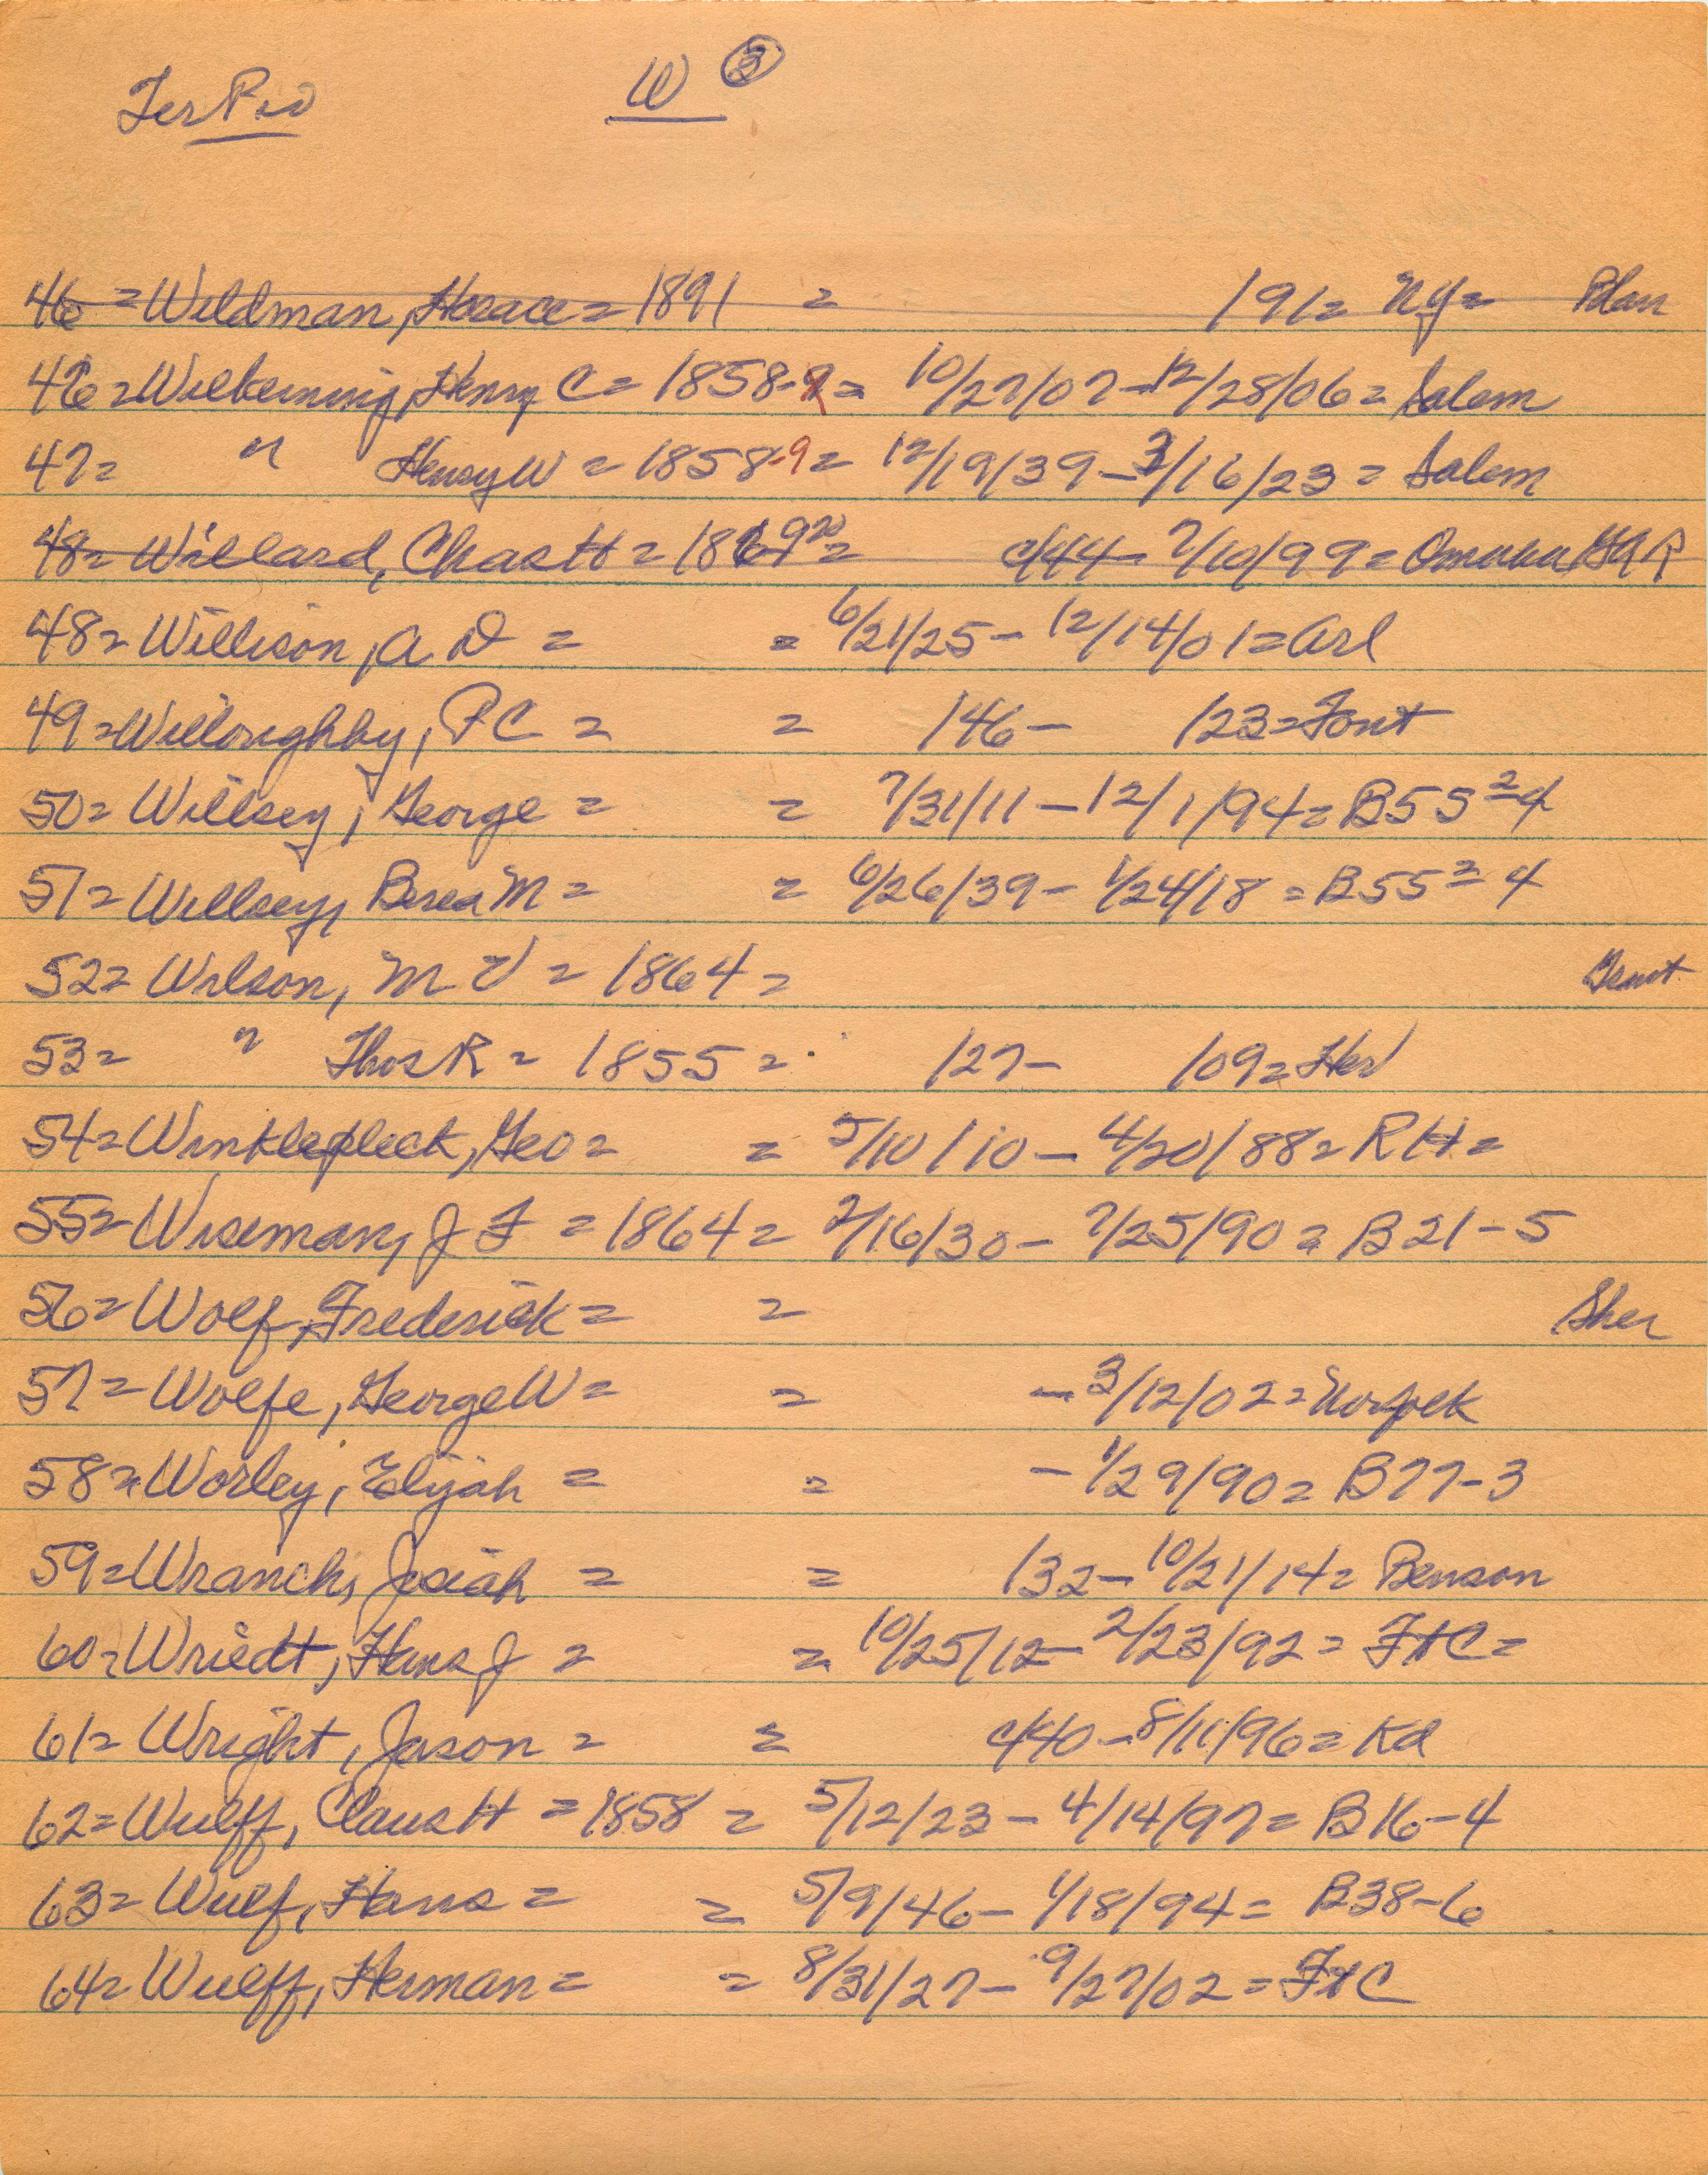 Ter Pio W 3
46 = Wildman, Horace = 1891 = 191= NY= Blair
46 = Wilkenning, Henry C = 1858-9 = 10/27/07-12/28/06 = Salem
47 = " Henry W = 1858-9 = 12/19/39-3/16/23 = Salem
48 = Willard, Chas H = 18 = c/44- 7/10/99 = Omaha GAR
48 = Willison, A D = = 6/21/25- 12/14/01 = Arl
49 = Willoughby, P C = = 146- 123 = Font
50 = Willsey, George = = 7/31/11-12/1/94 = B55 2-4
51 = Willsey, M = = 6/26/39- 1/24/18 = B55 2-4
52 = Wilson, M V = 1864 =
53 = " Thos R = 1855 = 127- 109 = Her
54 = Winklepleck, Geo = = 5/10/10-4/20/88 = RH =
55 = Wiseman, J F = 1864 = 2/16/30- 7/25/90 = B21-5
56 = Wolf, Frederick = = Sher
57 = Wolfe, George W = = -3/12/02 = Norfolk
58 = Worley, Elijah = = -1/29/90 = B77-3
59 = Wranch, Josiah = = 132-10/21/14 = Benson
60 = Wriedt, Hans J = = 10/25/12-2/23/92 = FtC =
61 = Wright, Jason = = c/40-8/11/96 = Kd
62 = Wulff, Claus H = 1858 = 5/12/23-4/14/97 = B16-4
63 = Wulf, Hans = = 5/9/46- 1/18/94 = B38-6
64 = Wulff, Herman = = 8/31/27- 9/27/02 = FtC